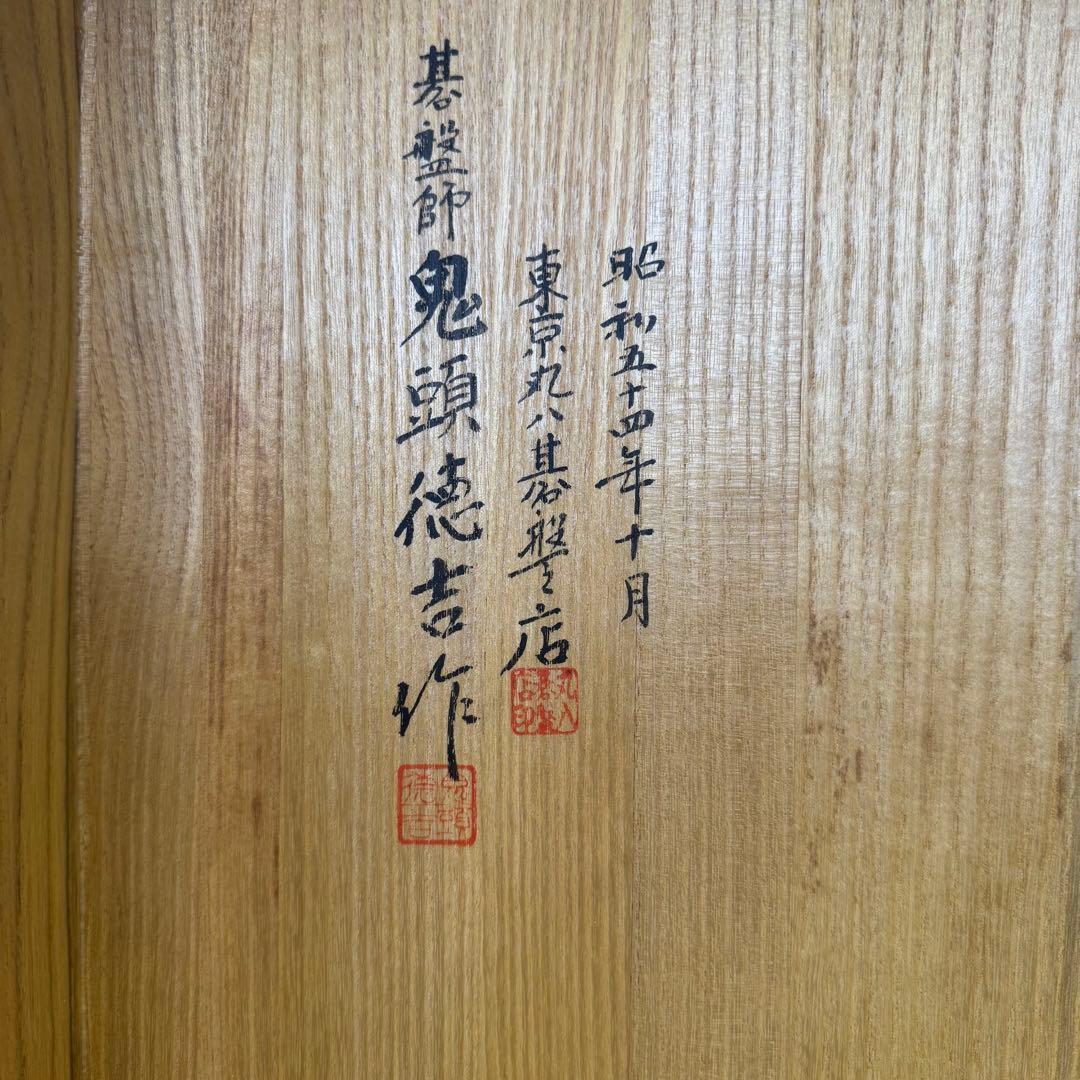 昭和五十四年十月
東京丸八碁盤店
碁盤師鬼頭徳吉作
鬼頭徳吉